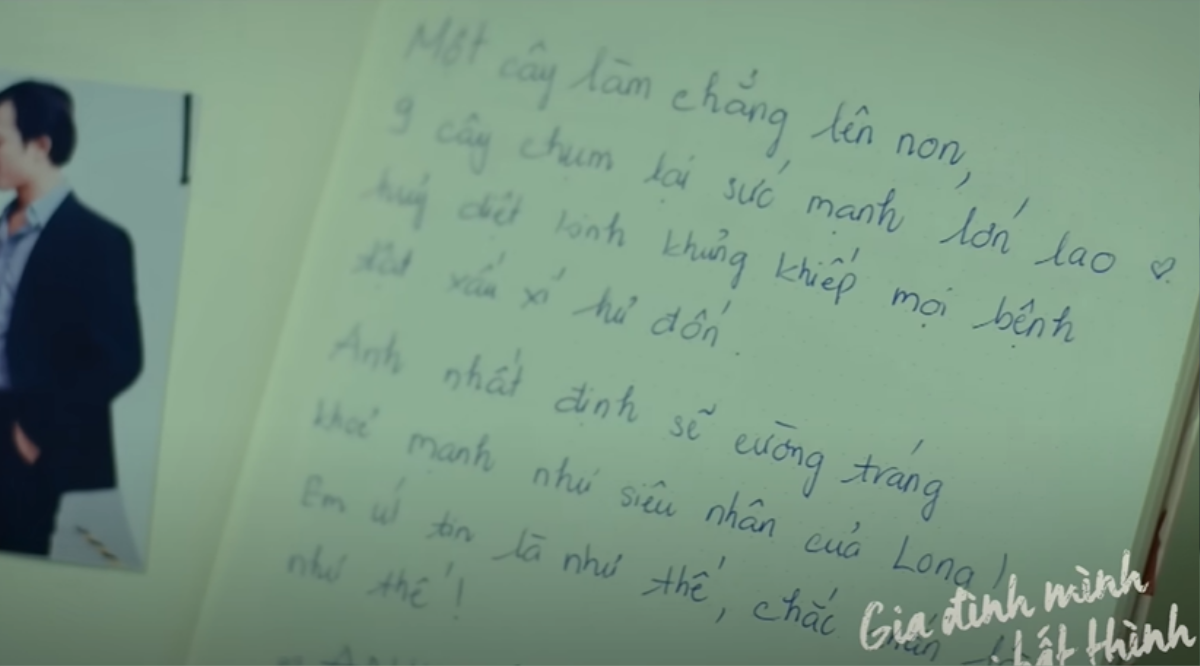 Một cây làm chẳng lên non,
9 cây chụm lại sức mạnh lớn lao ♡.
huỷ diệt kinh khủng khiếp mọi bệnh
tật xấu xí hư đốn.
Anh nhất định sẽ cường tráng
khoẻ mạnh như siêu nhân của Long!
Em tin là như thế, chắc
như thế!
Gia đình mình
thình